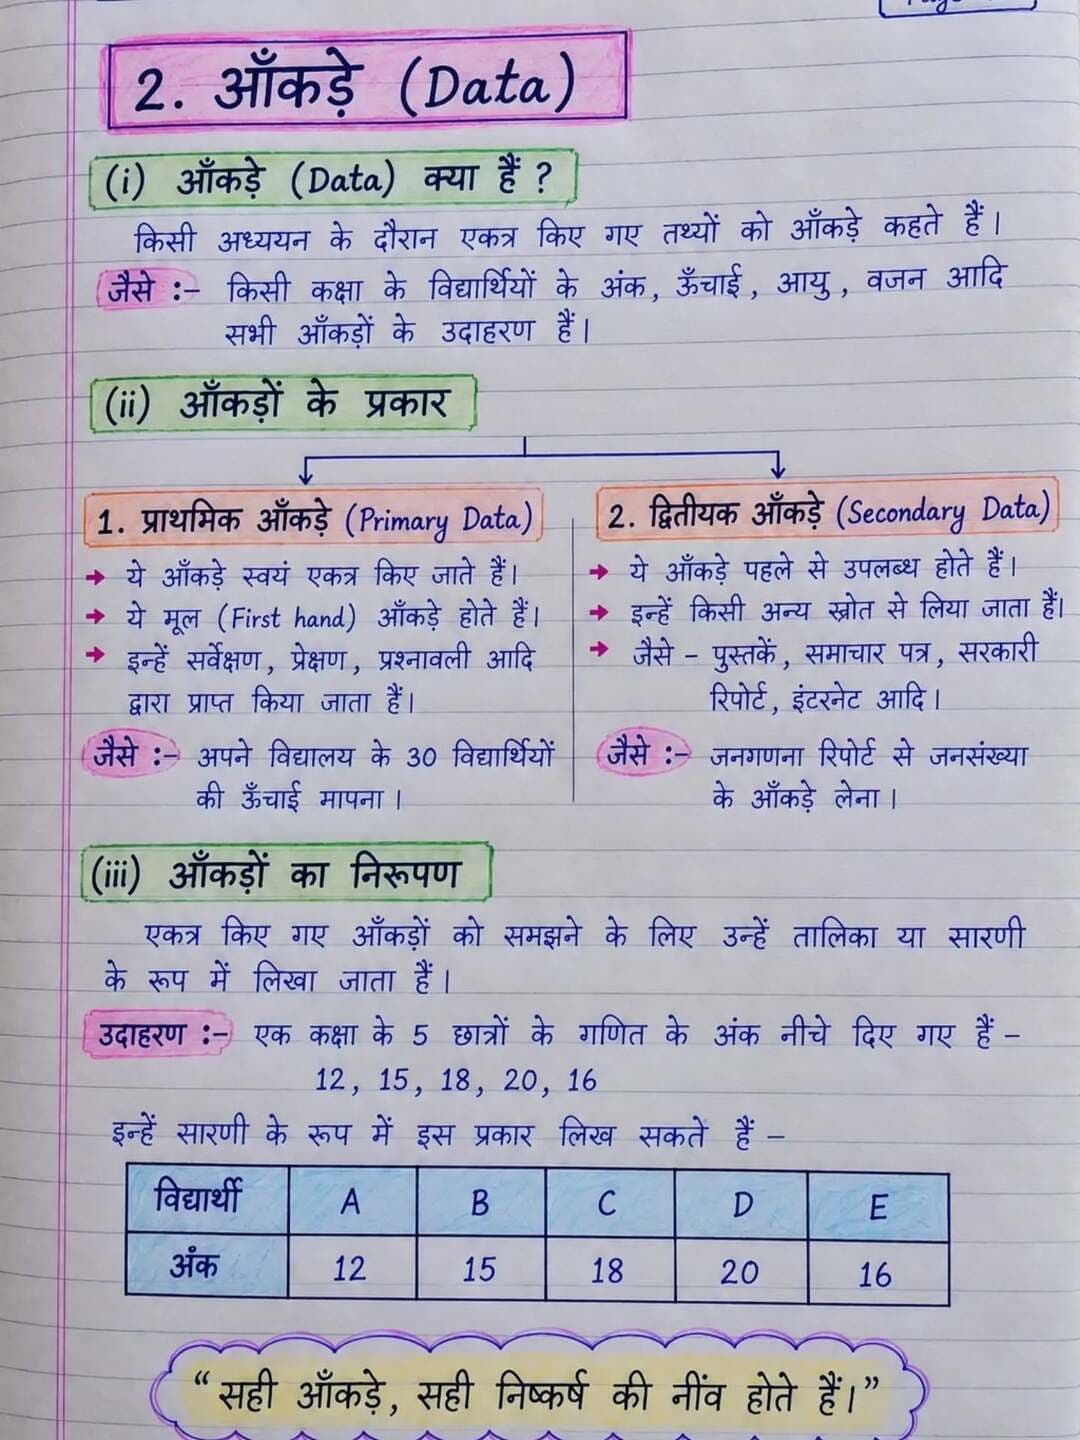 2. आँकड़े (Data)
(i) आँकड़े (Data) क्या हैं ?
किसी अध्ययन के दौरान एकत्र किए गए तथ्यों को आँकड़े कहते हैं।
जैसे :- किसी कक्षा के विद्यार्थियों के अंक, ऊँचाई, आयु, वजन आदि
सभी आँकड़ों के उदाहरण हैं।
(ii) आँकड़ों के प्रकार
1. प्राथमिक आँकड़े (Primary Data)
→ ये आँकड़े स्वयं एकत्र किए जाते हैं।
→ ये मूल (First hand) आँकड़े होते हैं।
→ इन्हें सर्वेक्षण, प्रेक्षण, प्रश्नावली आदि
द्वारा प्राप्त किया जाता हैं।
जैसे :- अपने विद्यालय के 30 विद्यार्थियों
की ऊँचाई मापना।
2. द्वितीयक आँकड़े (Secondary Data)
→ ये आँकड़े पहले से उपलब्ध होते हैं।
→ इन्हें किसी अन्य स्रोत से लिया जाता हैं।
→ जैसे - पुस्तकें, समाचार पत्र, सरकारी
रिपोर्ट, इंटरनेट आदि।
जैसे :- जनगणना रिपोर्ट से जनसंख्या
के आँकड़े लेना।
(iii) आँकड़ों का निरूपण
एकत्र किए गए आँकड़ों को समझने के लिए उन्हें तालिका या सारणी
के रूप में लिखा जाता हैं।
उदाहरण :- एक कक्षा के 5 छात्रों के गणित के अंक नीचे दिए गए हैं -
12, 15, 18, 20, 16
इन्हें सारणी के रूप में इस प्रकार लिख सकते हैं -
विद्यार्थी A B C D E
अंक 12 15 18 20 16
“सही आँकड़े, सही निष्कर्ष की नींव होते हैं।”